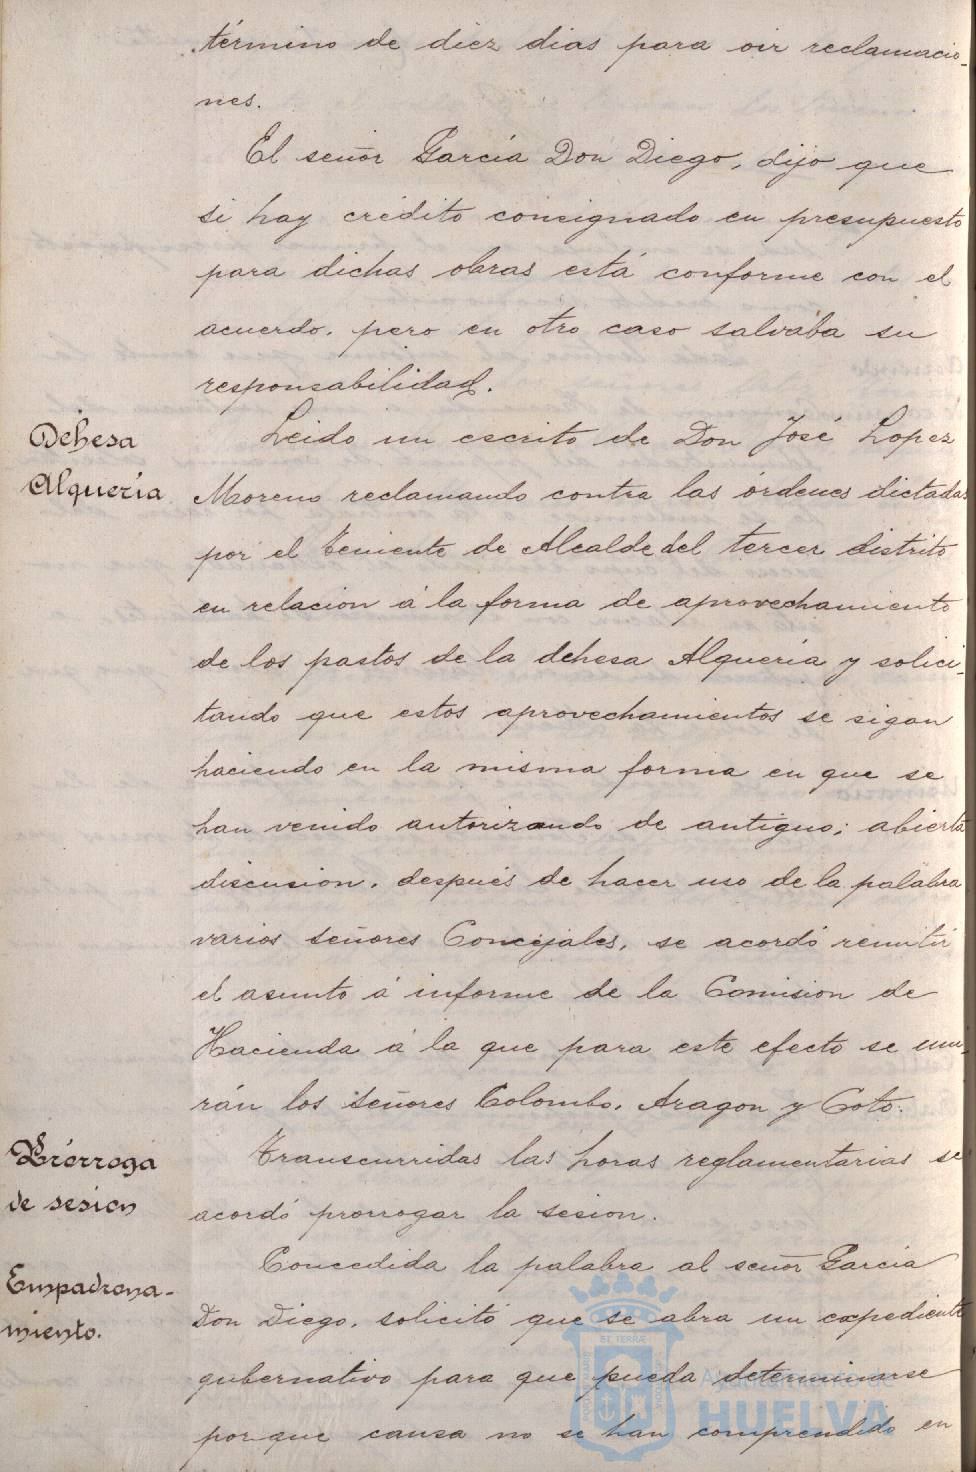 término de diez dias para oir reclamacio-
nes.
El señor García Don Diego, dijo que
si hay crédito consignado en presupuesto
para dichas obras está conforme con el
acuerdo, pero en otro caso salvaba su
responsabilidad.
Dehesa
Alquería
Leido un escrito de Don José Lopez
Moreno reclamando contra las órdenes dictadas
por el Teniente de Alcalde del tercer distrito
en relacion á la forma de aprovechamiento
de los pastos de la dehesa Alquería y solici-
tando que estos aprovechamientos se sigan
haciendo en la misma forma en que se
han venido autorizando de antiguo; abierta
discusion, después de hacer uso de la palabra
varios señores Concejales, se acordó remitir
el asunto á informe de la Comision de
Hacienda á la que para este efecto se uni-
rán los señores Colombo, Aragon y Coto.
Prórroga
de sesion
Transcurridas las horas reglamentarias se
acordó prorrogar la sesion.
Empadrona-
miento.
Concedida la palabra al señor García
Don Diego, solicitó que se abra un expediente
gubernativo para que pueda determinarse
por que causa no se han comprendido en
Ayuntamiento de
HUELVA